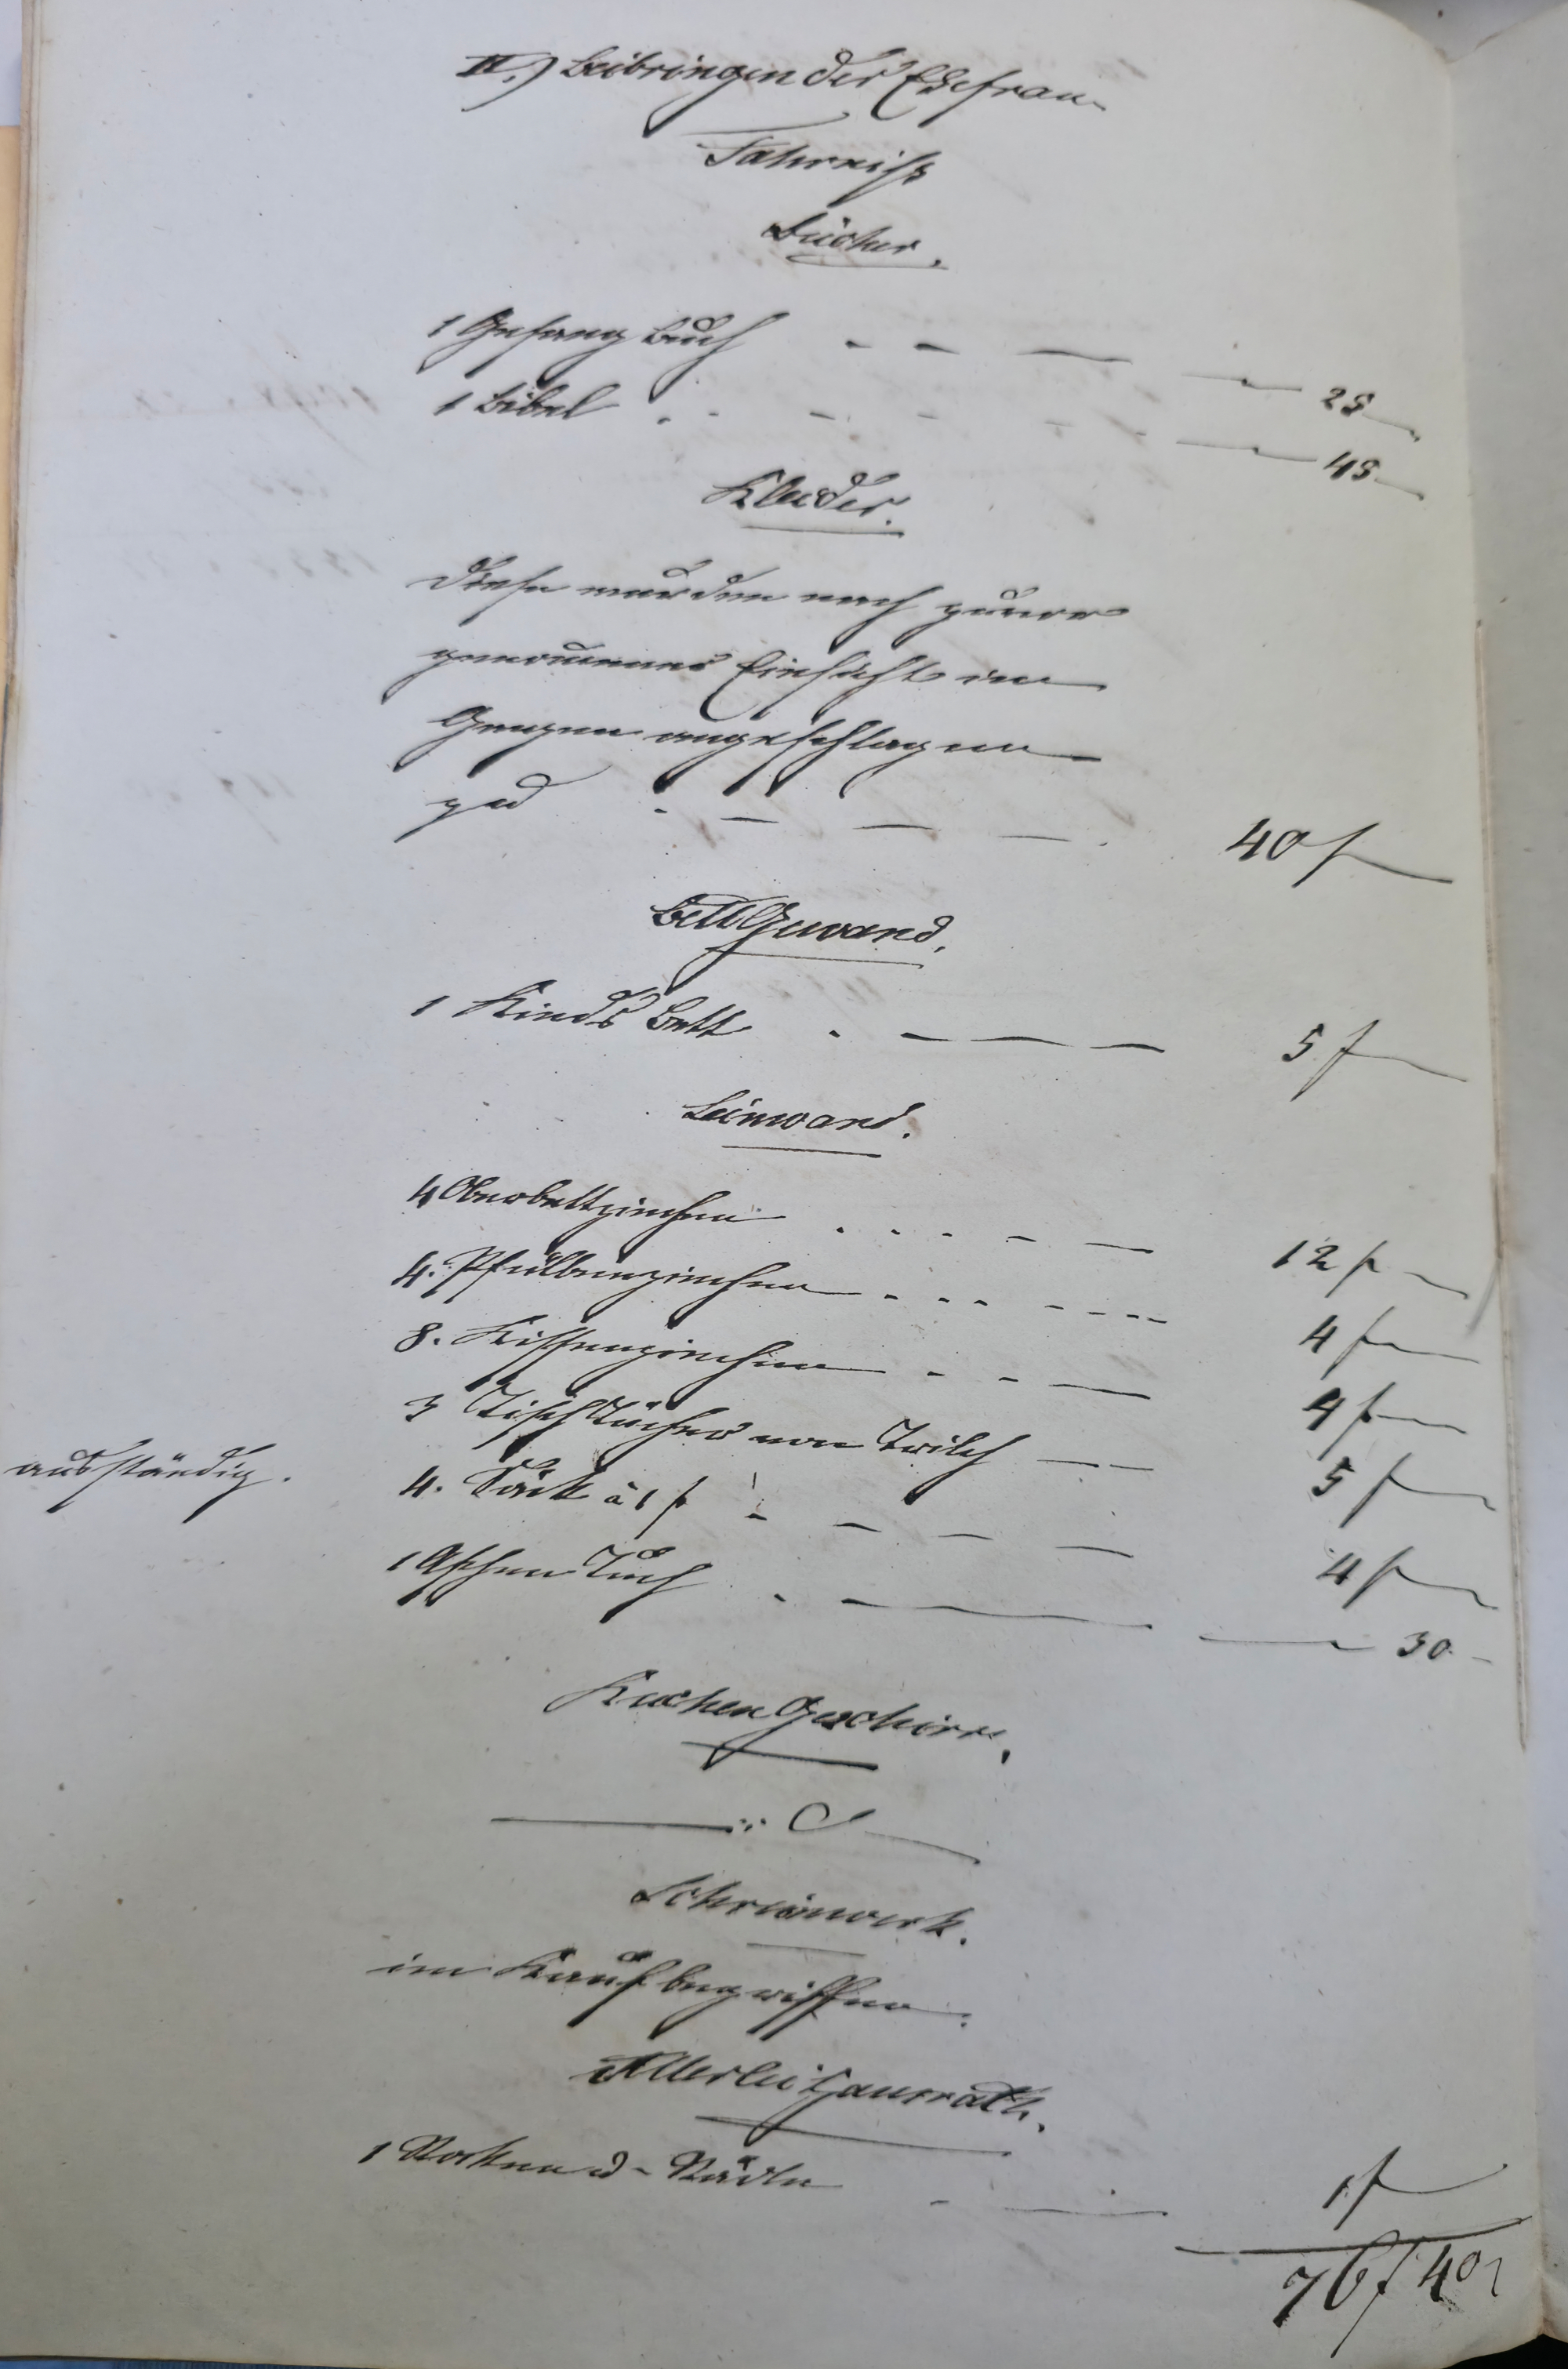 II.) Beibringen der Ehefrau
Fahrniß
Bücher.
1 Gesang buch - - — — 25
1 Bibel . - - - — 45
Kleider.
Diese wurden nach zuvor
genommener Einsicht im
Ganzen angeschlagen
zu - — — — 40 f
BettGewand.
1 Kinds Bett . — — — 5 f
Leinwand.
4 Oberbettziechen . . . - — 12 f
4. Pfulbenziechen . . . - - - 4 f
8. Kissenziechen . - — 4 f
3 Tischtücher von Trilch — - 5 f
ausständig.
4. Säck à 1 f - — — — 4 f
1 Aschen Tuch . — — 30
Kuchen Geschirr.
— : O —
Schreinwerk.
im Kauf begriffen.
Allerlei Hausrath.
1 - Rädle - — 1 f
76 f 40